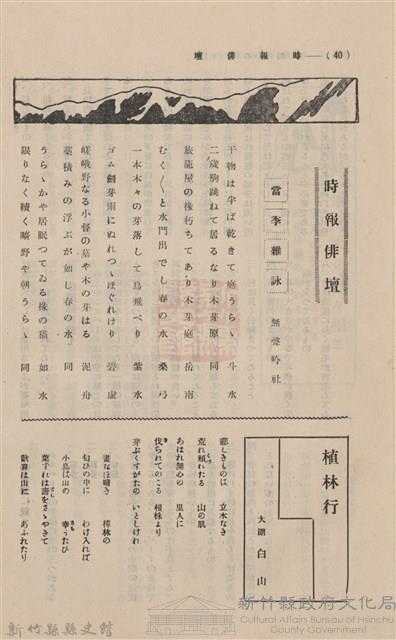 (40)——時報俳壇
時報俳壇
當季雑詠
無聲吟社
干物は半ば乾きて庭うらゝ 斗水
二歳駒跳ねて居るなり木芽原 同
旅籠屋の椽朽ちてあり木芽庭 岳南
むく〱と水門出でし春の水 桑弓
一本木々の芽落して鳥飛べり 紫水
ゴム劍芽雨にぬれつゝほぐれけり 碧虚
嵯峨野なる小督の墓や木の芽はる 泥舟
藁積みの浮ぶが如し春の水 同
うらゝかや居眠つてゐる椽の猫 如水
限りなく續く曠野や朝うらゝ 同
植林行
大湖 白山
立木なき
荒れ頽れたる 山の肌
あはれ無心の 里人に
伐られてのこる 根株より
芽ぶくすがたの いとしけれ
樟林の
匂ひの中に わけ入れば
小鳥は山の 幸うたひ
葉ずれは壽をさゝやきて
歡喜は山に あふれたり
新竹縣縣史館
新竹縣政府文化局
Cultural Affairs Bureau of Hsinchu County Government